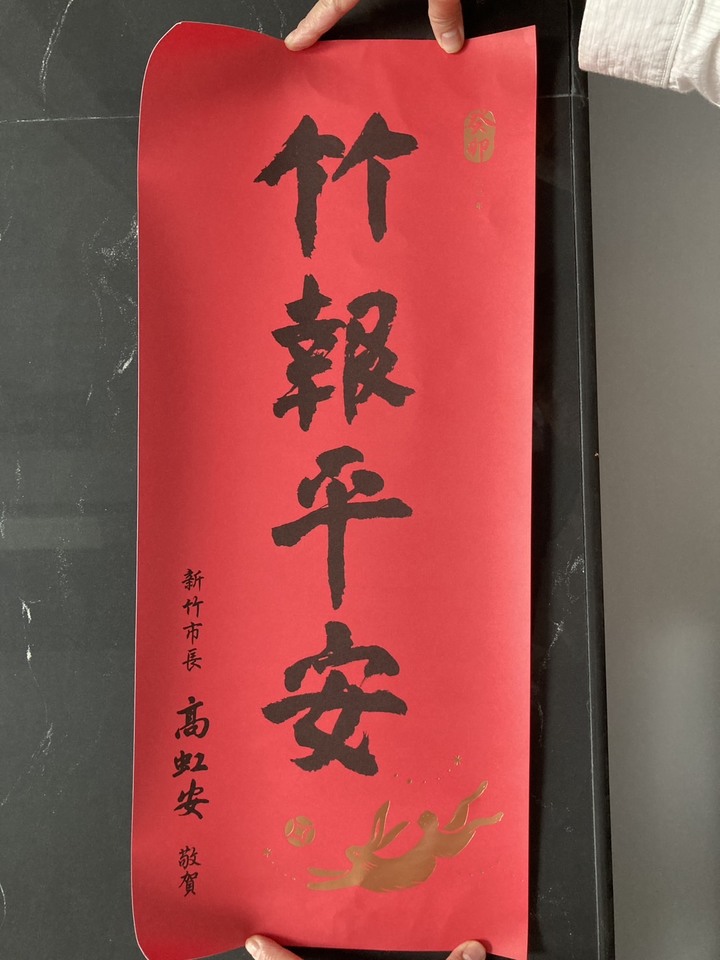 癸卯
竹報平安
新竹市長 高虹安 敬賀